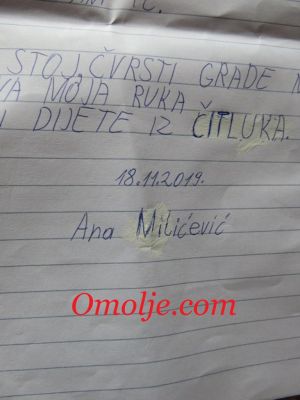 STOJ ČVRSTI GRADE
MOJA RUKA
I DIJETE IZ ČITLUKA.
18.11.2019.
Ana Milićević
Omolje.com